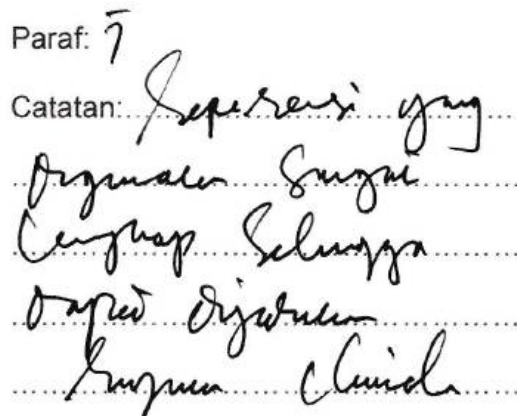 Paraf:
Catatan: Referensi yang
digunakan Sangat
Lengkap Sehingga
dapat dijadikan